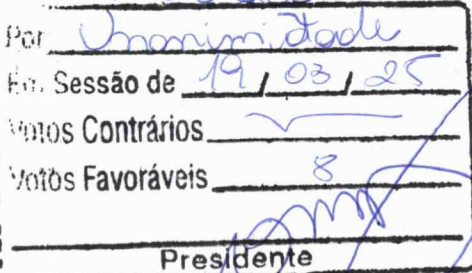 Por Unanimidade
Em Sessão de 19 / 03 / 25
Votos Contrários
Votos Favoráveis 8
Presidente